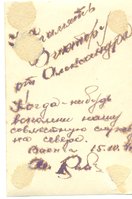 На память
Виктору
от Александра
Когда-нибудь
вспомни нашу
совместную службу
на севере.
Ваенга 15.10.